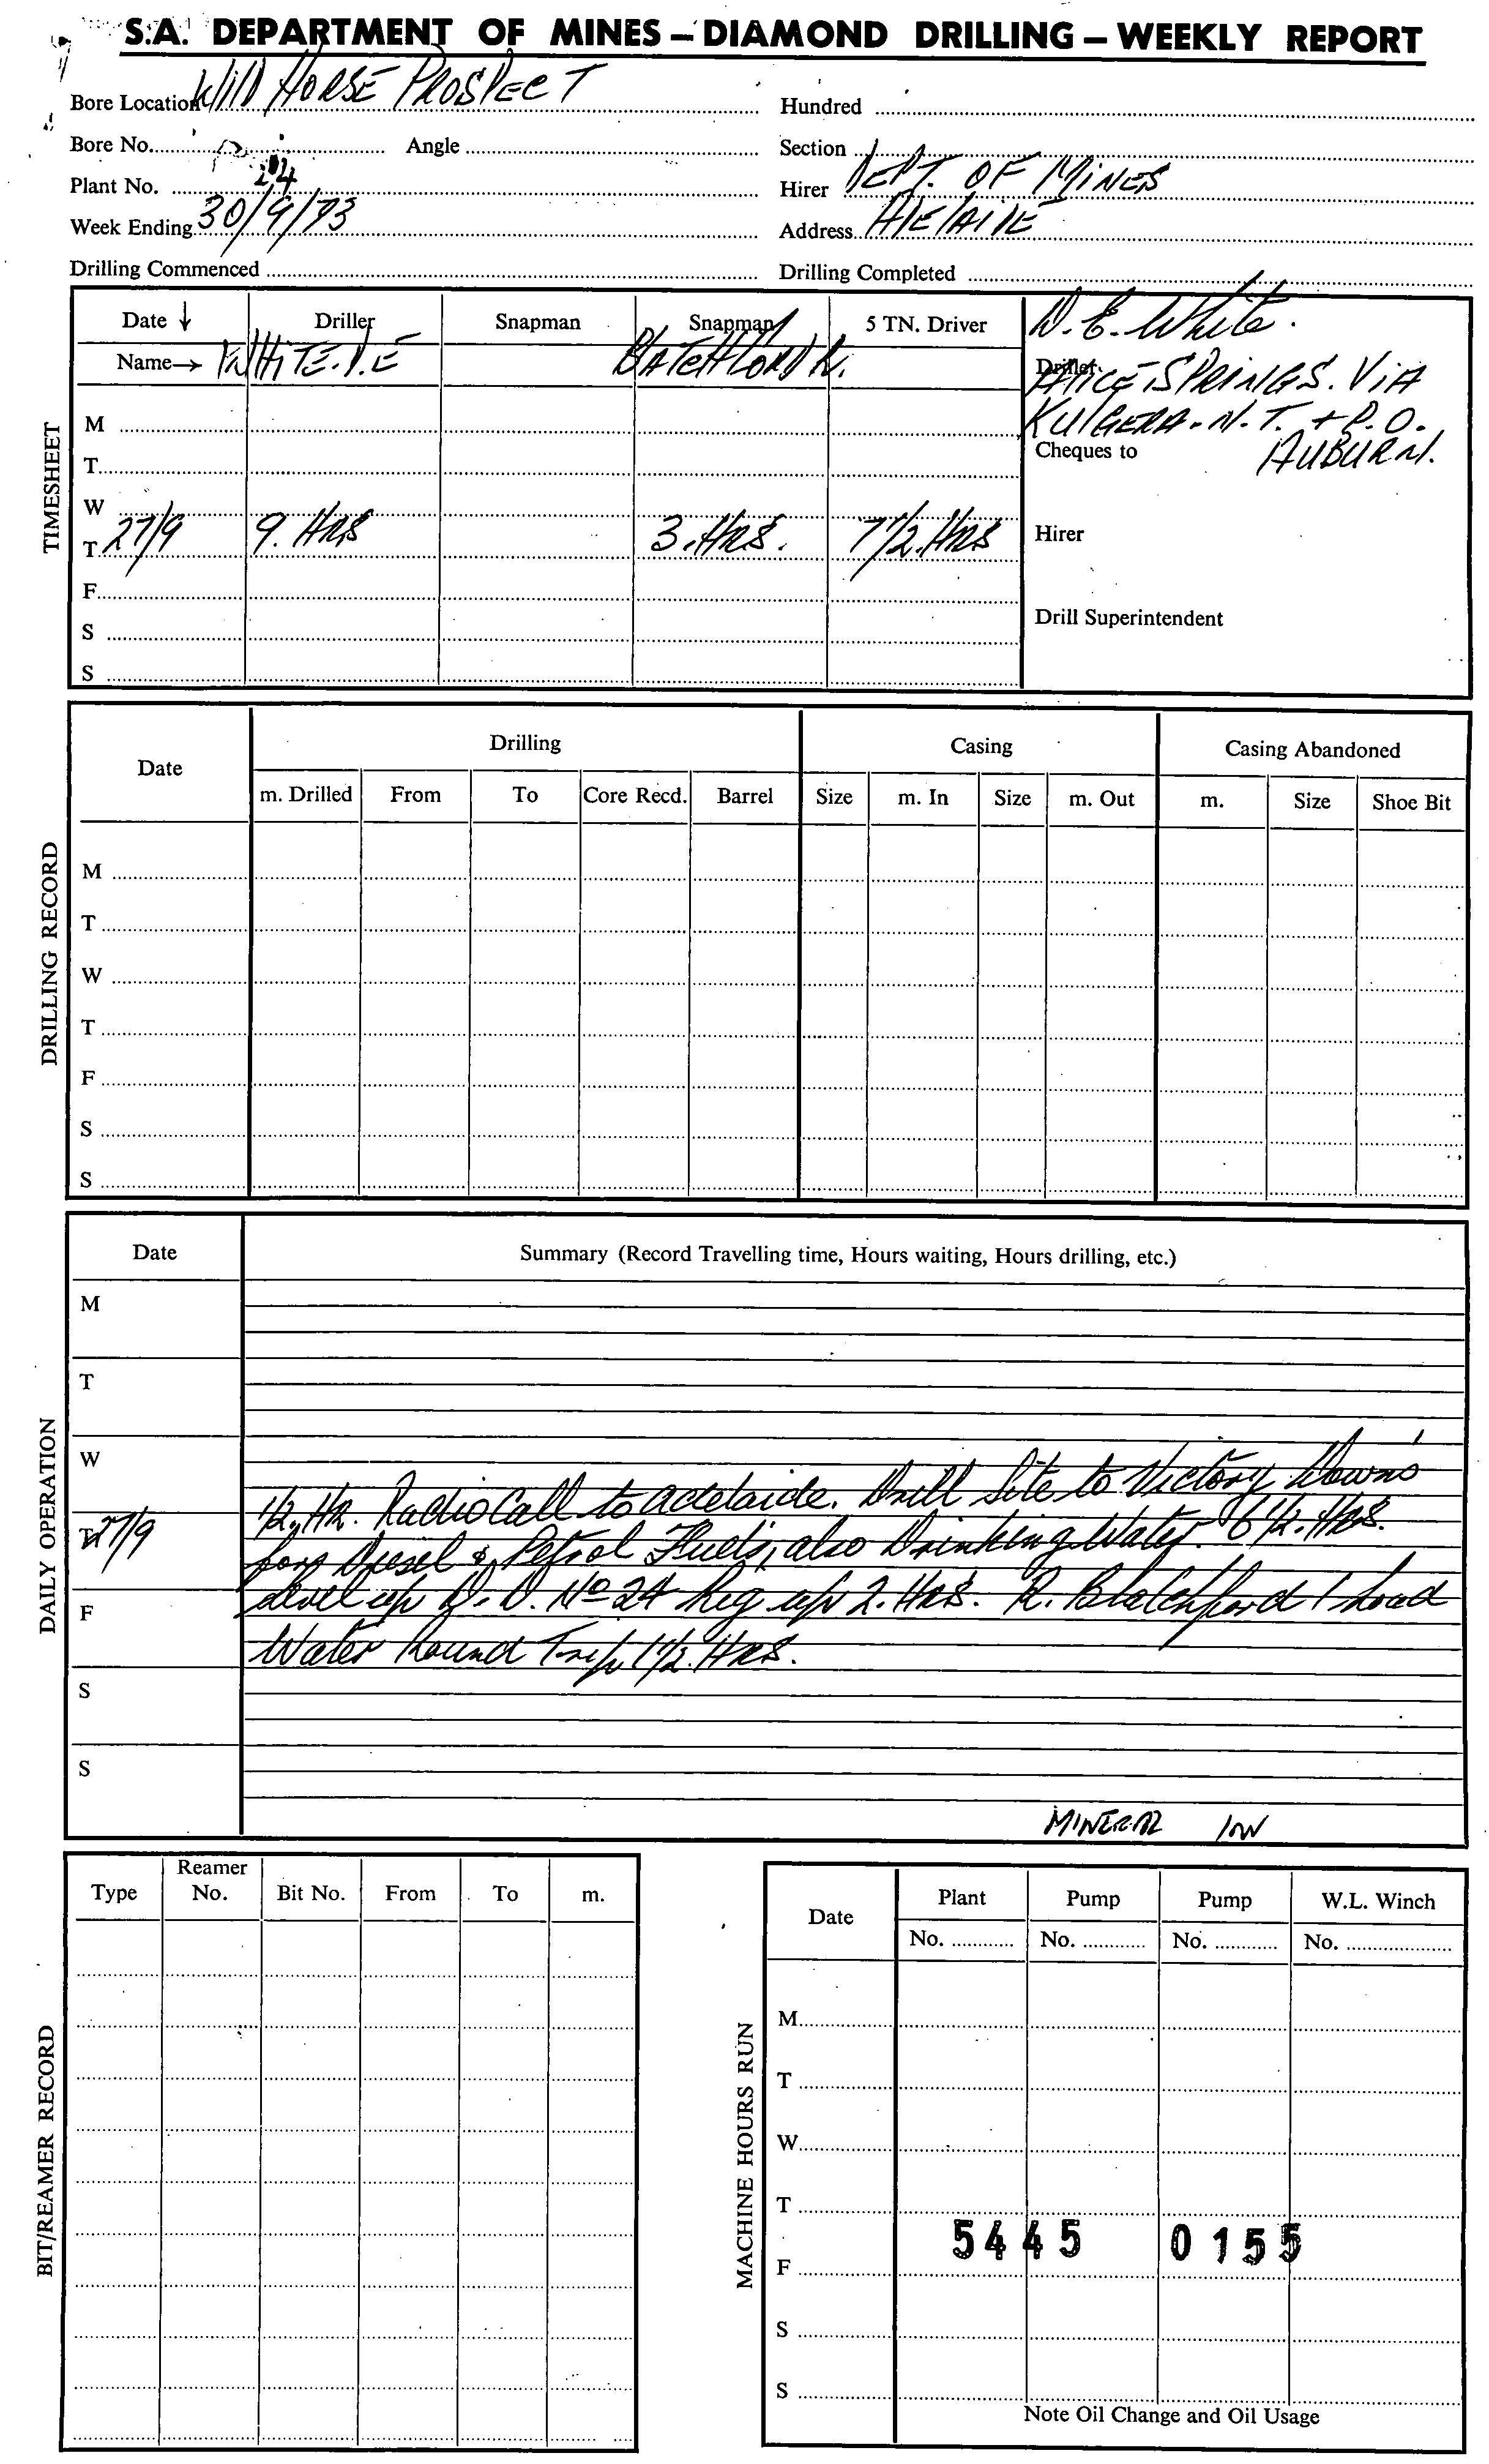 S.A. DEPARTMENT OF MINES – DIAMOND DRILLING – WEEKLY REPORT
Bore Location WILD HORSE PROSPECT Hundred
Bore No. Angle Section
Plant No. 24 Hirer DEPT. OF MINES
Week Ending 30/9/73 Address ADELAIDE
Drilling Commenced Drilling Completed
TIMESHEET
Date ↓ Driller Snapman Snapman 5 TN. Driver D. E. White.
Name → WHITE. D.E BLATCHFORD R. Driller
ALICE SPRINGS. VIA
KULGERA. N.T. + P.O.
M
Cheques to AUBURN.
T
W
T 27/9 9. HRS 3. HRS. 7 1/2. HRS Hirer
F
S Drill Superintendent
S
DRILLING RECORD
Date Drilling Casing Casing Abandoned
m. Drilled From To Core Recd. Barrel Size m. In Size m. Out m. Size Shoe Bit
M
T
W
T
F
S
S
DAILY OPERATION
Date Summary (Record Travelling time, Hours waiting, Hours drilling, etc.)
M
T
W
1/2. Hr. Radio Call to Adelaide. Drill Site to Victory Downs
T 27/9 for Diesel & Petrol Fuels, also Drinking Water. 6 1/2. HRS.
level up D. D. No 24 Rig up 2. HRS. R. Blatchford 1 Load
F
Water Round Trip 1 1/2. HRS.
S
S
MINERAL
BIT/REAMER RECORD
Type Reamer No. Bit No. From To m.
MACHINE HOURS RUN
Date Plant Pump Pump W.L. Winch
No. No. No. No.
M
T
W
T
5445 0155
F
S
S
Note Oil Change and Oil Usage